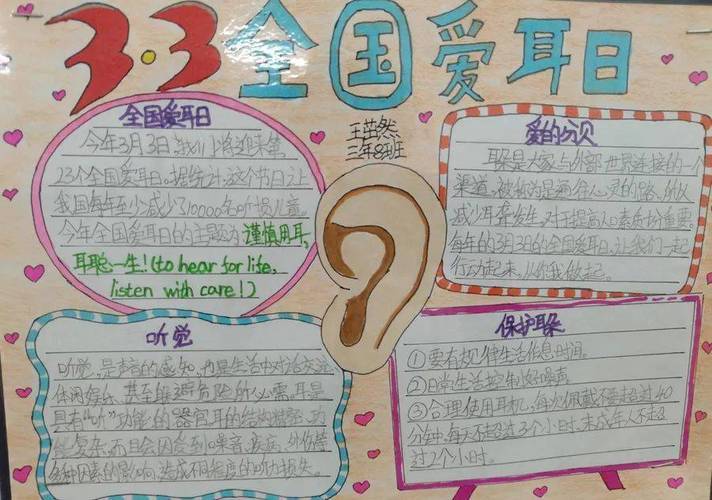 3·3全国爱耳日
全国爱耳日
今年3月3日,我们将迎来第
23个全国爱耳日。据统计,这个节日让
我国每年至少减少了10000名听损儿童。
今年全国爱耳日的主题为:谨慎用耳,
耳聪一生!(to hear for life,
listen with care!)
王芷然
三年8班
爱的分贝
耳朵是大家与外部世界连接的一个
渠道,被称为是通往心灵的路,
减少耳聋发生,对于提高人口素质十分重要。
每年的3月3日的全国爱耳日,让我们一起
行动起来,从你我做起。
听觉
听觉,是声音的感知,也是生活中对话交流、
休闲娱乐、甚至躲避危险所必需,耳是
具有“听”功能的器官,耳的结构精密、功
能复杂,而且会因受到噪音、疾病、外伤等
多种因素的影响,造成不同程度的听力损失。
保护耳朵
①要有规律生活作息时间。
②日常生活控制好噪声。
③合理使用耳机,每次佩戴不要超过40
分钟,每天不超过3个小时,未成年人不超
过2个小时。